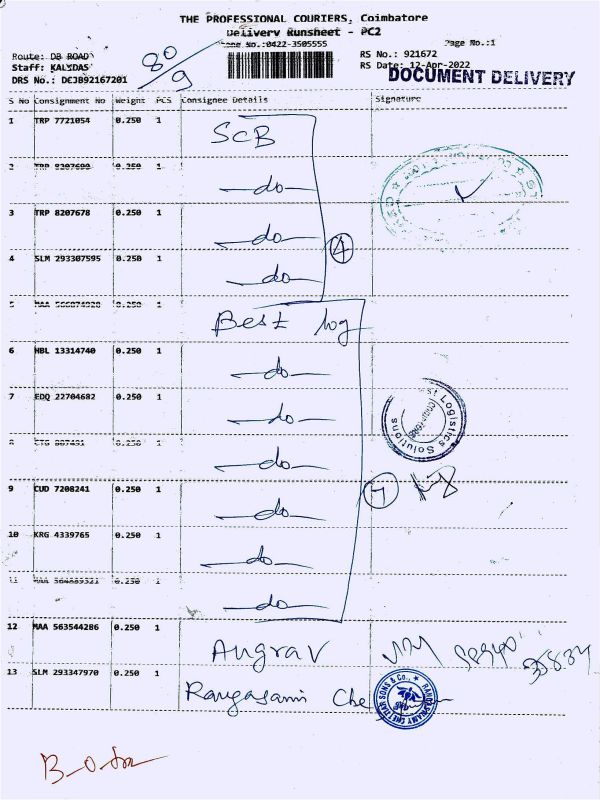 THE PROFESSIONAL COURIERS, Coimbatore
Delivery Runsheet - PC2
Phone No.:0422-3505555
Page No.:1
Route: DB ROAD
Staff: KALYDAS
DRS No.: DEJB92167201
80/9
RS No.: 921672
RS Date: 12-Apr-2022
DOCUMENT DELIVERY
S No Consignment No Weight PCS Consignee Details Signature
1 TRP 7721054 0.250 1 SCB
2 TRP 8207600 0.250 1 do
3 TRP 8207678 0.250 1 do
4 SLM 293307595 0.250 1 do
4
5 MAA 1 Best log
6 HBL 13314740 0.250 1 do
7 EDQ 22704682 0.250 1 do
8 CTG 887491 0.250 1 do
Best Logistics Solutions
9 CUD 7208241 0.250 1 do
7
10 KRG 4339765 0.250 1 do
11 MAA 0.250 1 do
12 MAA 563544286 0.250 1
13 SLM 293347970 0.250 1 Rangasami Che
RANGASWAMY CHETTIAR SONS & Co.,